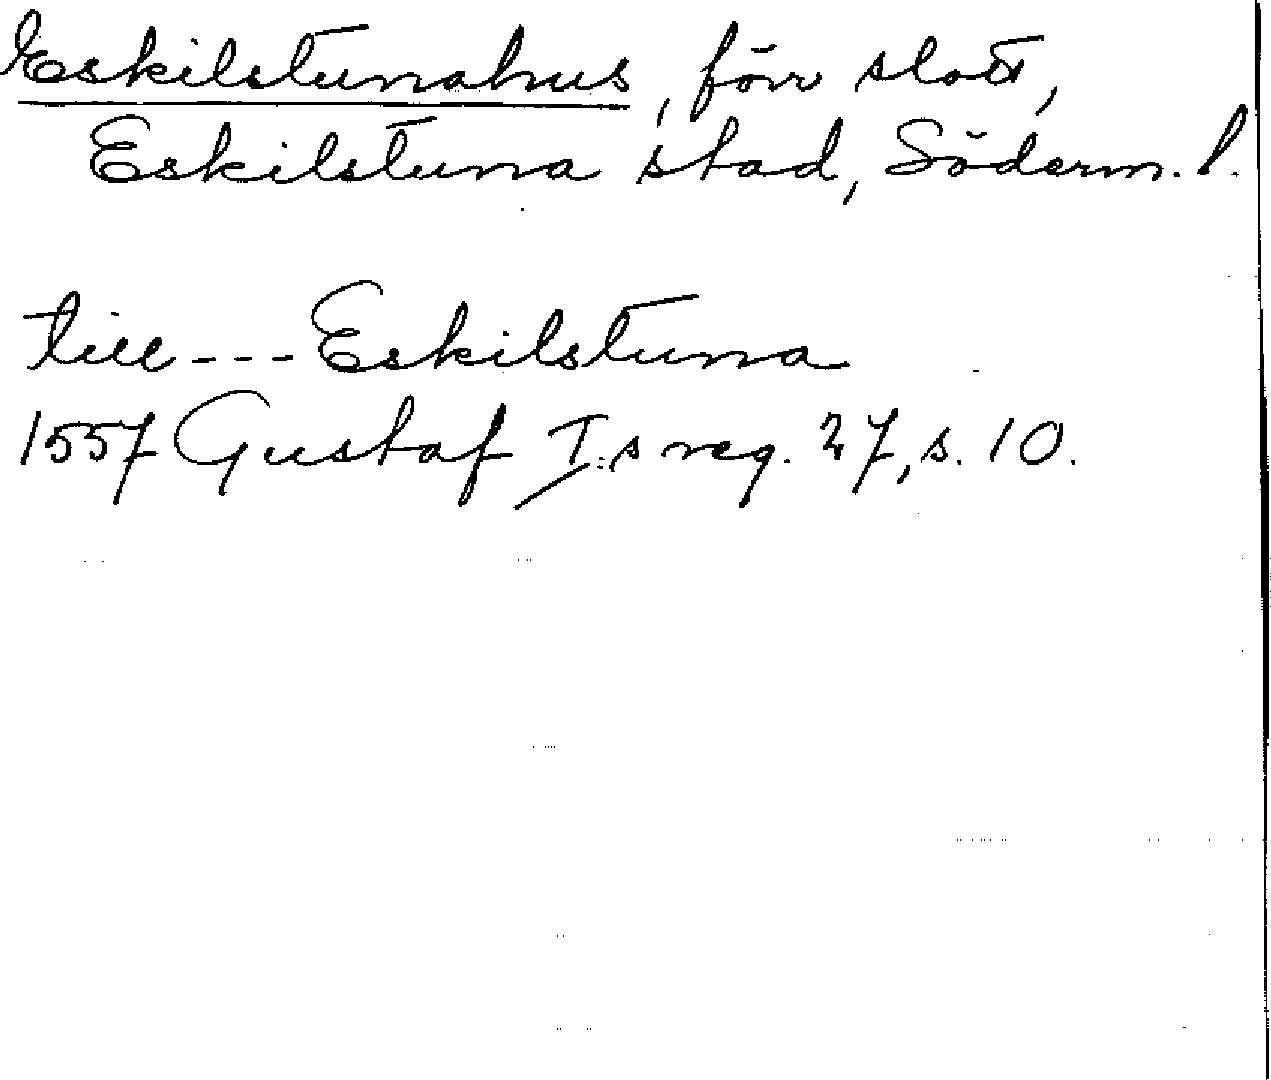 Eskilstunahus, förr slott,
Eskilstuna stad, Söderm. l.
till --- Eskilstuna
1557 Gustaf I:s reg. 27, s. 10.